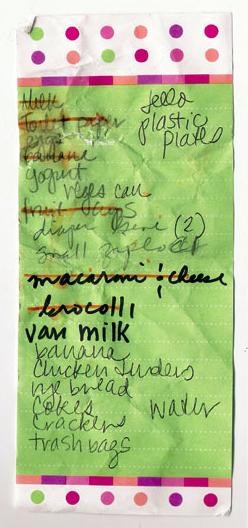 Milk
toilet paper
eggs
banana
yogurt
veges can
fruit cups
diaper (2)
small ziplock
macaroni & cheese
brocolli
van milk
banana
chicken tenders
nyc bread
cokes
crackers
trash bags
Jello
plastic
plates
water